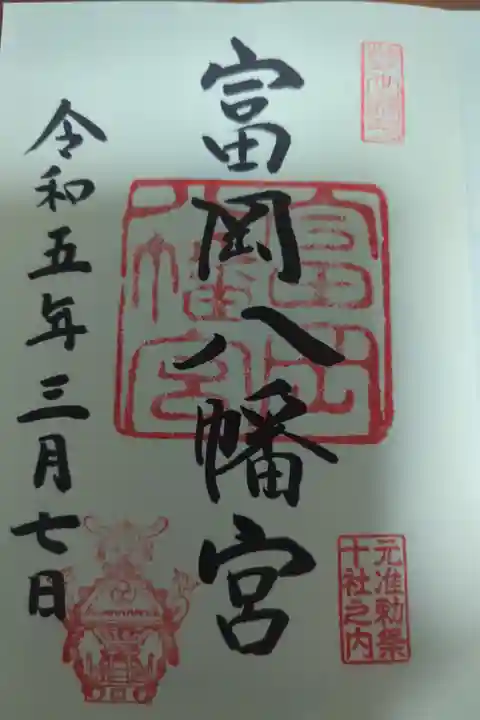 富岡八幡宮
元准勅祭
十社之内
令和五年三月七日